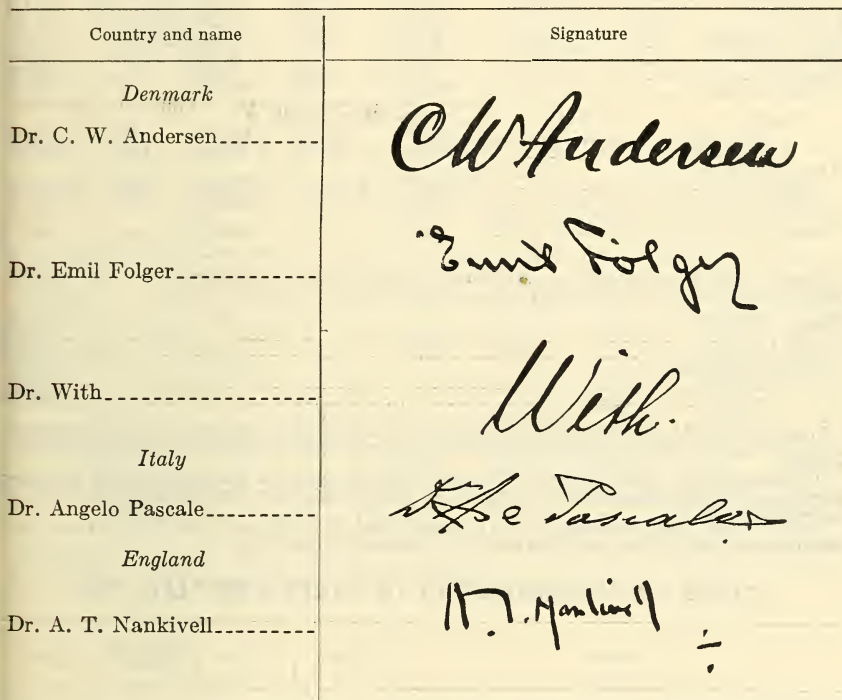 Country and name Signature
Denmark
Dr. C. W. Andersen CW Andersen
Dr. Emil Folger Emil Folger
Dr. With With.
Italy
Dr. Angelo Pascale
England
Dr. A. T. Nankivell A. T. Nankivell